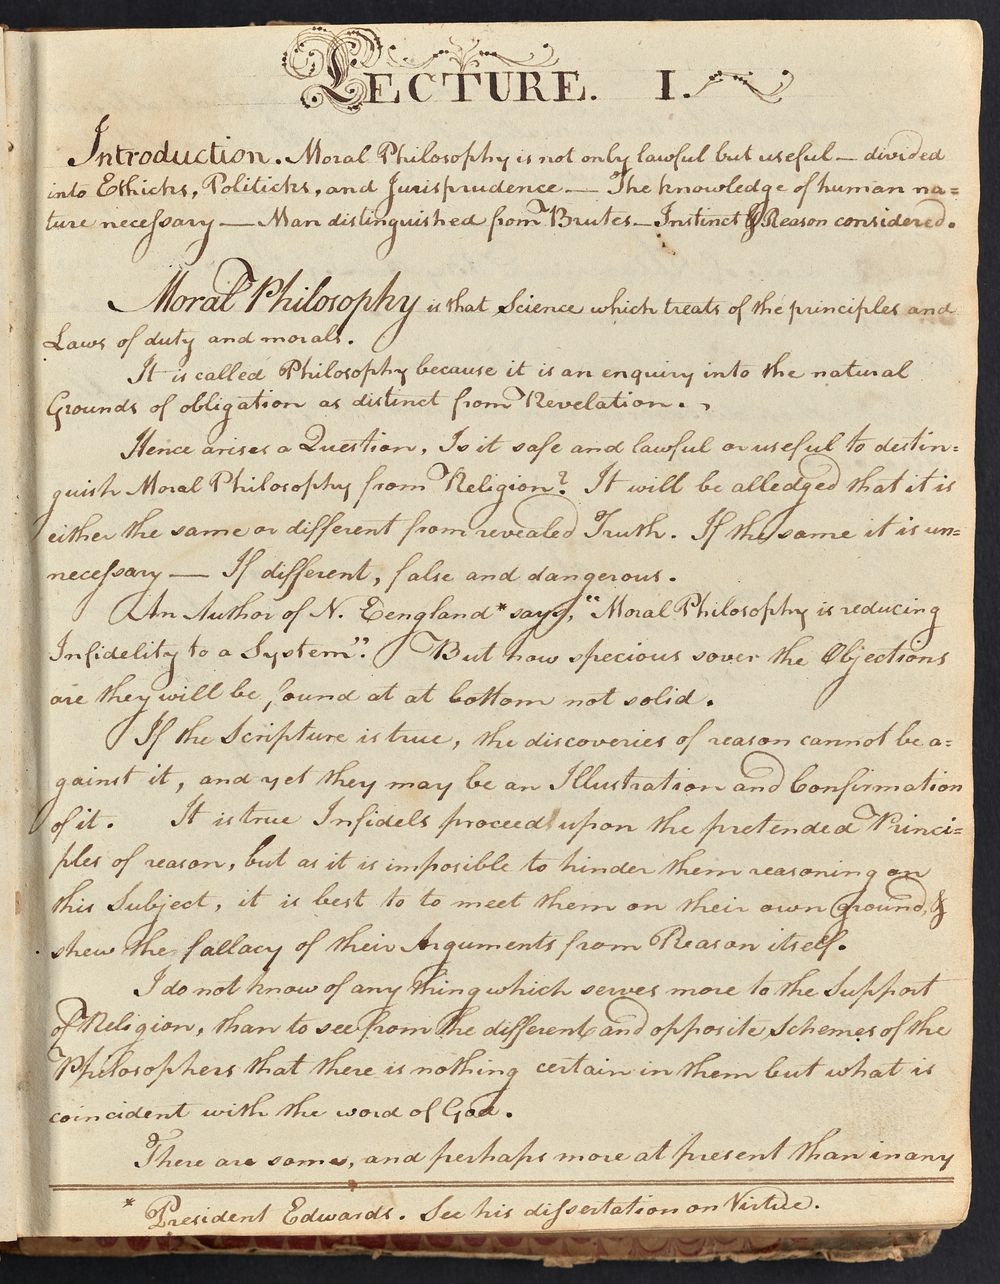 LECTURE. I.
Introduction. Moral Philosophy is not only lawful but useful — divided
into Ethicks, Politicks, and Jurisprudence — The knowledge of human na=
ture necessary — Man distinguished from Brutes — Instinct & Reason considered.
Moral Philosophy is that Science which treats of the principles and
Laws of duty and morals.
It is called Philosophy because it is an enquiry into the natural
Grounds of obligation as distinct from Revelation.
Hence arises a Question, Is it safe and lawful or useful to destin=
guish Moral Philosophy from Religion? It will be alledged that it is
either the same or different from revealed Truth. If the same it is un=
necessary — If different, false and dangerous.
An Author of N. Eengland * says, "Moral Philosophy is reducing
Infidelity to a System". But how specious sover the Objections
are they will be found at at bottom not solid.
If the Scripture is true, the discoveries of reason cannot be a=
gainst it, and yet they may be an Illustration and Confirmation
of it. It is true Infidels proceed upon the pretended Princi=
ples of reason, but as it is imposible to hinder them reasoning on
this Subject, it is best to to meet them on their own ground, &
shew the fallacy of their Arguments from Reason itself.
I do not know of any thing which serves more to the Support
of Religion, than to see from the different and opposite Schemes of the
Philosophers that there is nothing certain in them but what is
coincident with the word of God.
There are some, and perhaps more at present than in any
* President Edwards. See his dissertation on Virtue.